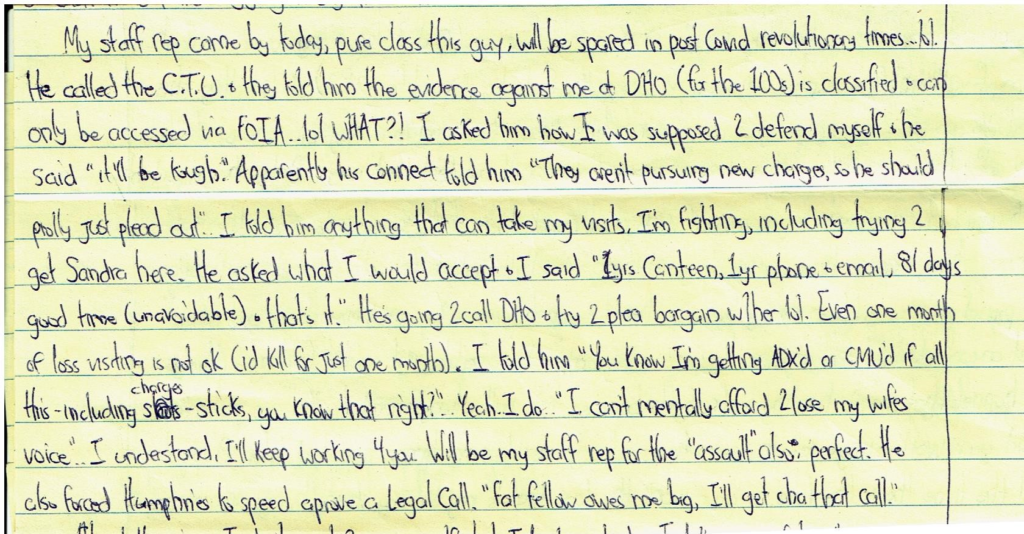 My staff rep came by today, pure class this guy, will be spared in post Covid revolutionary times...lol.
He called the C.T.U. & they told him the evidence against me at DHO (for the 100s) is classified & can
only be accessed via FOIA...lol WHAT?! I asked him how I was supposed 2 defend myself & he
said "it'll be tough." Apparently his connect told him "They arent pursuing new charges, so he should
prolly just plead out". I told him anything that can take my visits, I'm fighting, including trying 2
get Sandra here. He asked what I would accept & I said "1yrs Canteen, 1yr phone & email, 81 days
good time (unavoidable) & that's it." He's going 2 call DHO & try 2 plea bargain w/her lol. Even one month
of loss visiting is not ok (i'd kill for just one month). I told him "You know I'm getting ADX'd or CMU'd if all
this - including charges - sticks, you know that right?".. Yeah. I do.. "I can't mentally afford 2 lose my wifes
voice".. I understand, I'll keep working 4 you. Will be my staff rep for the "assault" also, perfect. He
also forced Humphries to speed aprove a Legal Call. "Fat fellow owes me big, I'll get cha that call."